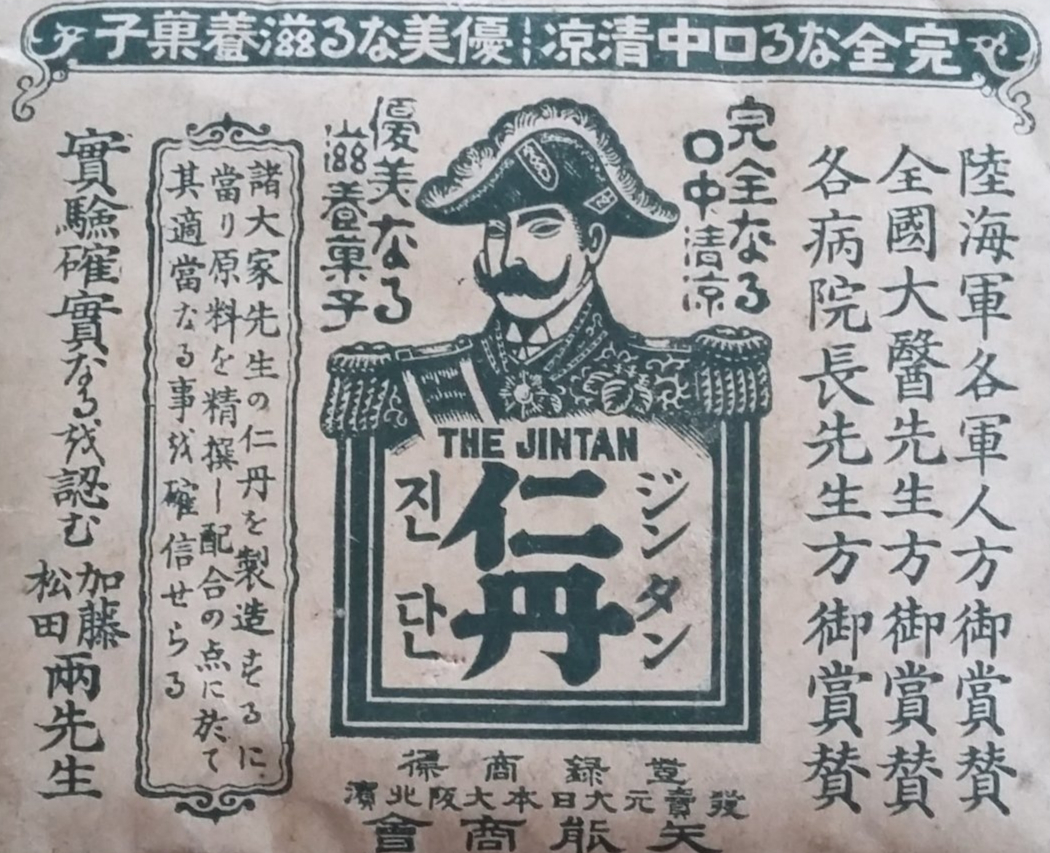 完全なる口中清涼 優美なる滋養菓子
陸海軍各軍人方御賞賛
全國大醫先生方御賞賛
各病院長先生方御賞賛
完全なる
口中清涼
優美なる
滋養菓子
THE JINTAN
ジンタン
仁丹
진단
登録商標
發賣元大日本大阪北濱
矢能商會
諸大家先生の仁丹を製造するに
當り原料を精撰し配合の点に於て
其適當なる事を確信せらる
實驗確實なるを認む
加藤
松田
兩先生